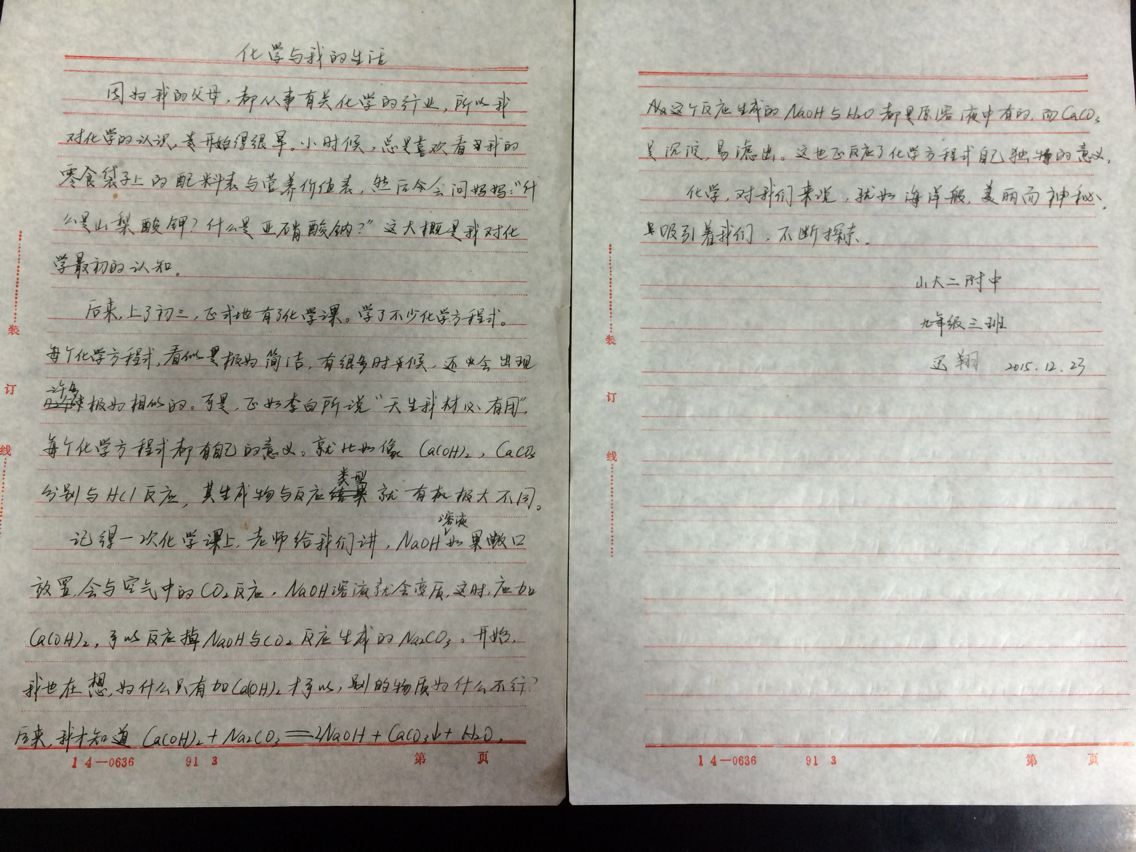 化学与我的生活
因为我的父母,都从事有关化学的行业,所以我
对化学的认识,是开始得很早。小时候,总是喜欢看着我的
零食袋子上的配料表与营养价值表,然后会问妈妈:“什
么是山梨酸钾?什么是亚硝酸钠?”这大概是我对化
学最初的认知。
后来,上了初三,正式地有了化学课。学了不少化学方程式。
每个化学方程式,看似是极为简洁,有很多时候,还会出现
许多极为相似的。可是,正如李白所说“天生我材必有用”,
每个化学方程式都有自己的意义。就比如像 Ca(OH)₂,CaCO₃
分别与HCl反应,其生成物与反应类型就有极大不同。
记得一次化学课上,老师给我们讲,NaOH溶液如果敞口
放置,会与空气中的CO₂反应,NaOH溶液就会变质,这时,应加
Ca(OH)₂,可以反应掉NaOH与CO₂反应生成的Na₂CO₃。开始,
我也在想,为什么只有加Ca(OH)₂才可以,别的物质为什么不行?
后来,我才知道 Ca(OH)₂+Na₂CO₃══2NaOH+CaCO₃↓+H₂O,
这个反应生成的NaOH与H₂O都是原溶液中有的,而CaCO₃
是沉淀,易滤出。这也正反应了化学方程式自己独特的意义。
化学,对我们来说,犹如海洋般,美丽而神秘,
吸引着我们,不断探索。
山大二附中
九年级三班
翔 2015.12.23
装
订
线
装
订
线
14—0636 91 3 第 页
14—0636 91 3 第 页